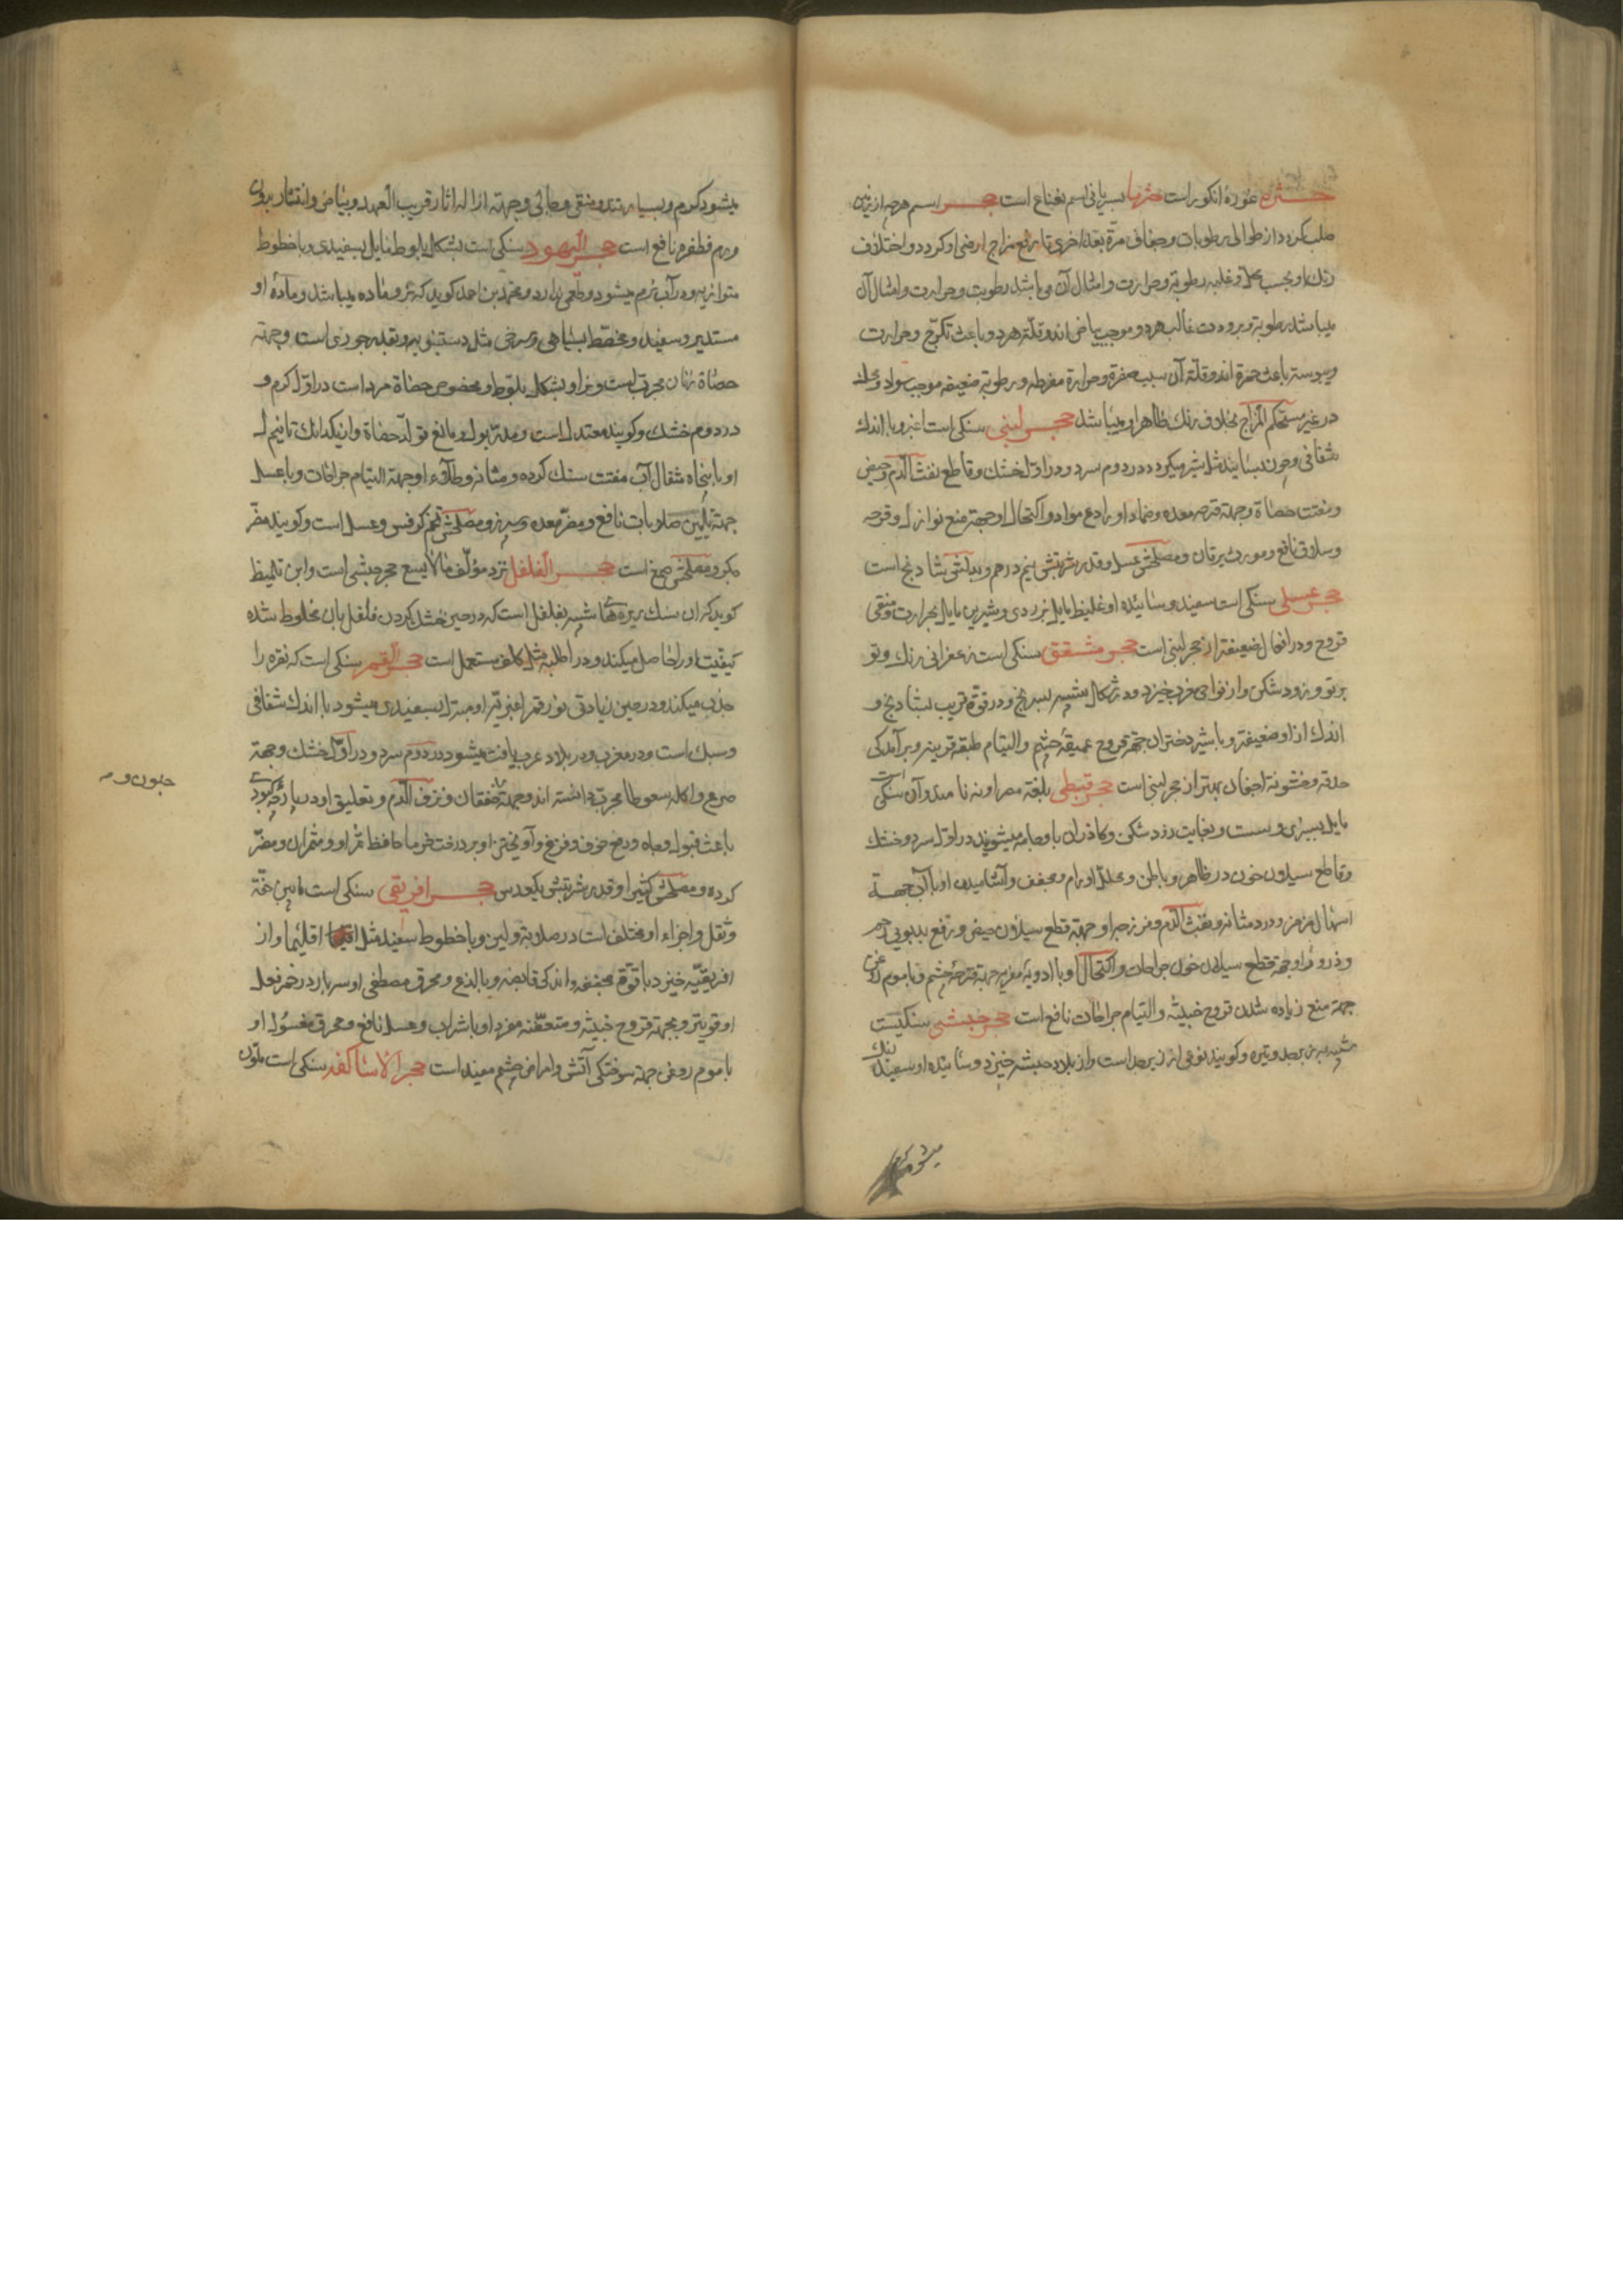 حثره غوره انکور است حثرها بسریانی اسم نعناع است حجر اسم هرچه از زمین
صلب کردد از طوالی رطوبات وجفاف مرّة بعد اخری تا رفع مزاج ارضی او کردد و اختلاف
رنک او بحسب محلّ و غلبه رطوبة وحرارت وامثال آن میباشد رطوبت وحرارت وامثال آن
میباشد رطوبة وبرودت غالب هر دو موجب بیاض اند وقلّة هر دو باعث تکرّج وحرارت
ویبوست باعث حمرة اند وقلّة آن سبب صفرة وحرارة مفرطه ورطوبة ضعیفه موجب سواد و محک
در غیر مستحکم المزاج بخلاف رنک ظاهر او میباشد حجر لبنی سنکی است اغبر و با اندک
شفافی وچون بسایند مثل شیر میکردد در دوم سرد و در اوّل خشک و قاطع نفث الدّم وحیض
ومفتت حصاة وجهة قرحه معده وضماد او رادع مواد و اکتحال او جهة منع نوازل وقرحه
وسلاق نافع ومورث یرقان ومصلحش عسل وقدر شربتش نیم درهم وبدلش شادنج است
حجر عسلی سنکی است سفید وساییده او غلیظ مایل بزردی وشیرین مایل بحرارت ومنقی
قروح ودر افعال ضعیفتر از حجر لبنی است حجر مشقق سنکی است زعفرانی رنک وتو
برتو وزود شکن واز نواحی غرب خیزد ودر شکل شبیه بسرنج ودر قوّة قریب بشادنج و
اندک از او ضعیفتر وبا شیر دختران جهة قروح عمیقهٔ چشم والتیام طبقه قرنیه وبرآمدکی
حدقه وخشونة اجفان بهتر از حجر لبنی است حجر قبطی بلغة مصر اونه نامند وآن سنکی است
مایل بسبزی وسست وبغایت زود شکن وکاذران باو جامه میشویند در اوّل سرد وخشک
وقاطع سیلان خون در ظاهر وباطن ومحلل اورام ومجفف وآشامیدن او با آب جهة
اسهال مزمن ودرد مثانه ونفث الدّم وفرزجه او جهة قطع سیلان حیض ورفع بدبویی رحم
وذرور او جهة قطع سیلان خون جراحات واکتحال او با ادویه مغریه جهة قرحهٔ چشم وبا موم روغن
جهة منع زیاده شدن قروح خبیثه والتیام جراحات نافع است حجر حبشی سنکیست
شبیه بزبرجد وتیره وکویند نوعی از زبرجد است واز بلاد حبشه خیزد وساییده او سفید رنک
میشود کرم
میشود کرم وبسیار تند ومنقی وجالی وجهة ازاله اثار قریب العهد وبیاض وانتشار بروان
ورم فظفره نافع است حجر الیهود سنکی است بشکل بلوط مایل بسفیدی وبا خطوط
متوازیه ودر آب نرم میشود وطعمی ندارد ومحمد بن احمد کوید که نر وماده میباشد ومادهٔ او
مستدیر وسفید ومخطط بسیاهی وسرخی مثل دستنبویه وبقدر جوزی است وجهة
حصاة زنان مجرّبست ونر او بشکل بلوط ومخصوص حصاة مرد است در اوّل کرم و
در دوم خشک وکویند معتدل است ومدرّ بول ومانع تولّد حصاة وازیکدانک تا نیم
او با پنجاه مثقال آب مفتت سنک کرده ومثانه وطلاء او جهة التیام جراحات وبا عسل
جهة تلیین صلابات نافع ومضرّ معده وسپرز ومصلحش تخم کرفس وعسل است وکویند مضرّ
جکر ومصلحش صمغ است حجر الفلفل نزد مؤلّف مالایسع حجر حبشی است وابن تلمیظ
کوید که آن سنک ریزه‌ها شبیه بفلفل است که در حین خشک کردن فلفل بان مخلوط شده
کیفیت او را حاصل میکند ودر اطلیه مثل کلف مستعمل است حجر القمر سنکی است که نقره را
جذب میکند ودر حین زیادتی نور قمر اغبریّة او مبدّل بسفیدی میشود با اندک شفافی
وسبک است ودر مغرب ودر بلاد عرب یافت میشود در دوم سرد ودر اوّل خشک وجهة
صرع واکله سعوطا مجرّب دانسته اند وجهة خفقان ونزف الدّم وتعلیق او در پارچه کبود
باعث قبول وجاه ودفع خوف وفزع وآویختن او بر درخت خرما حافظ ثمر او ومثمر آن ومضرّ
کرده ومصلحش کتیرا وقدر شربتش یکعدس حجر افریقی سنکی است مابین خفّة
وثقل واجزاء او مختلف است در صلابة ولین وبا خطوط سفید مثل اقلیما واز
افریقیّه خیزد با قوّة مجففه واندکی قابضه وبا لذع ومحرق مطفی او سه بار در خمر فعل
او قویتر وبجهة قروح خبیثه ومتعفّنه مفرد او با شراب وعسل نافع ومحرق مغسول او
با موم روغن جهة سوختکی آتش وامراض چشم مفید است حجر الاساکفه سنکی است ملّون
جنون و